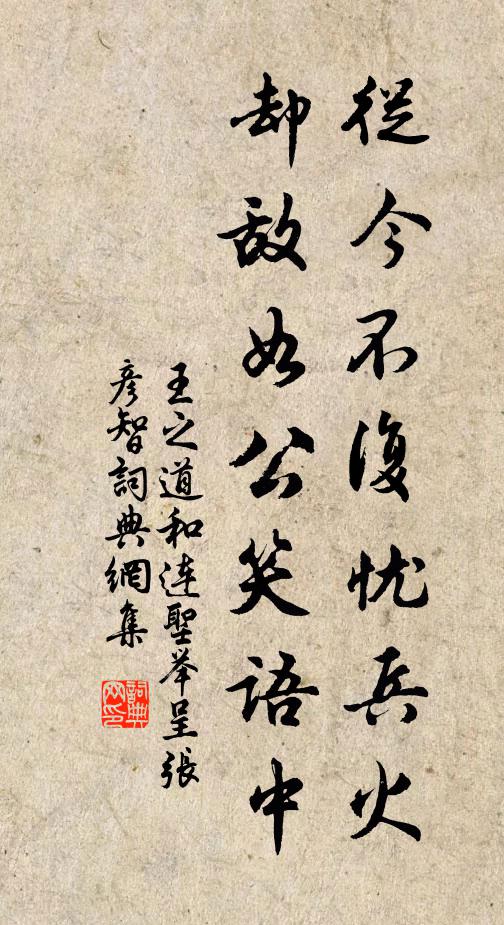 從今不復忧兵火
却敌如公笑語中
王之道和连聖举呈張
彦智詞典網集
詞典网印